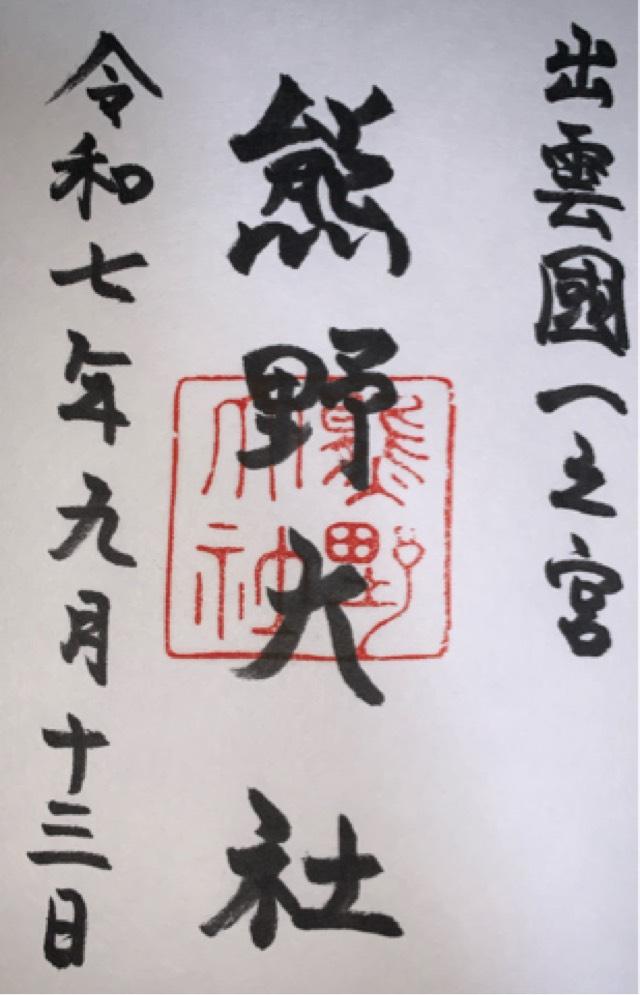 出雲國一之宮
熊野大社
熊野
大社
令和七年九月十三日